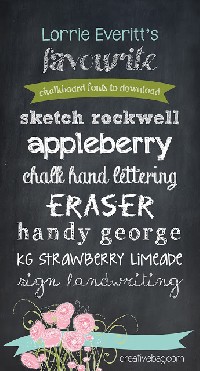 Lorrie Everitt's
favourite
chalkboard fonts to download
sketch rockwell
appleberry
chalk hand lettering
ERASER
handy george
KG STRAWBERRY LIMEADE
sign handwriting
creativebag.com